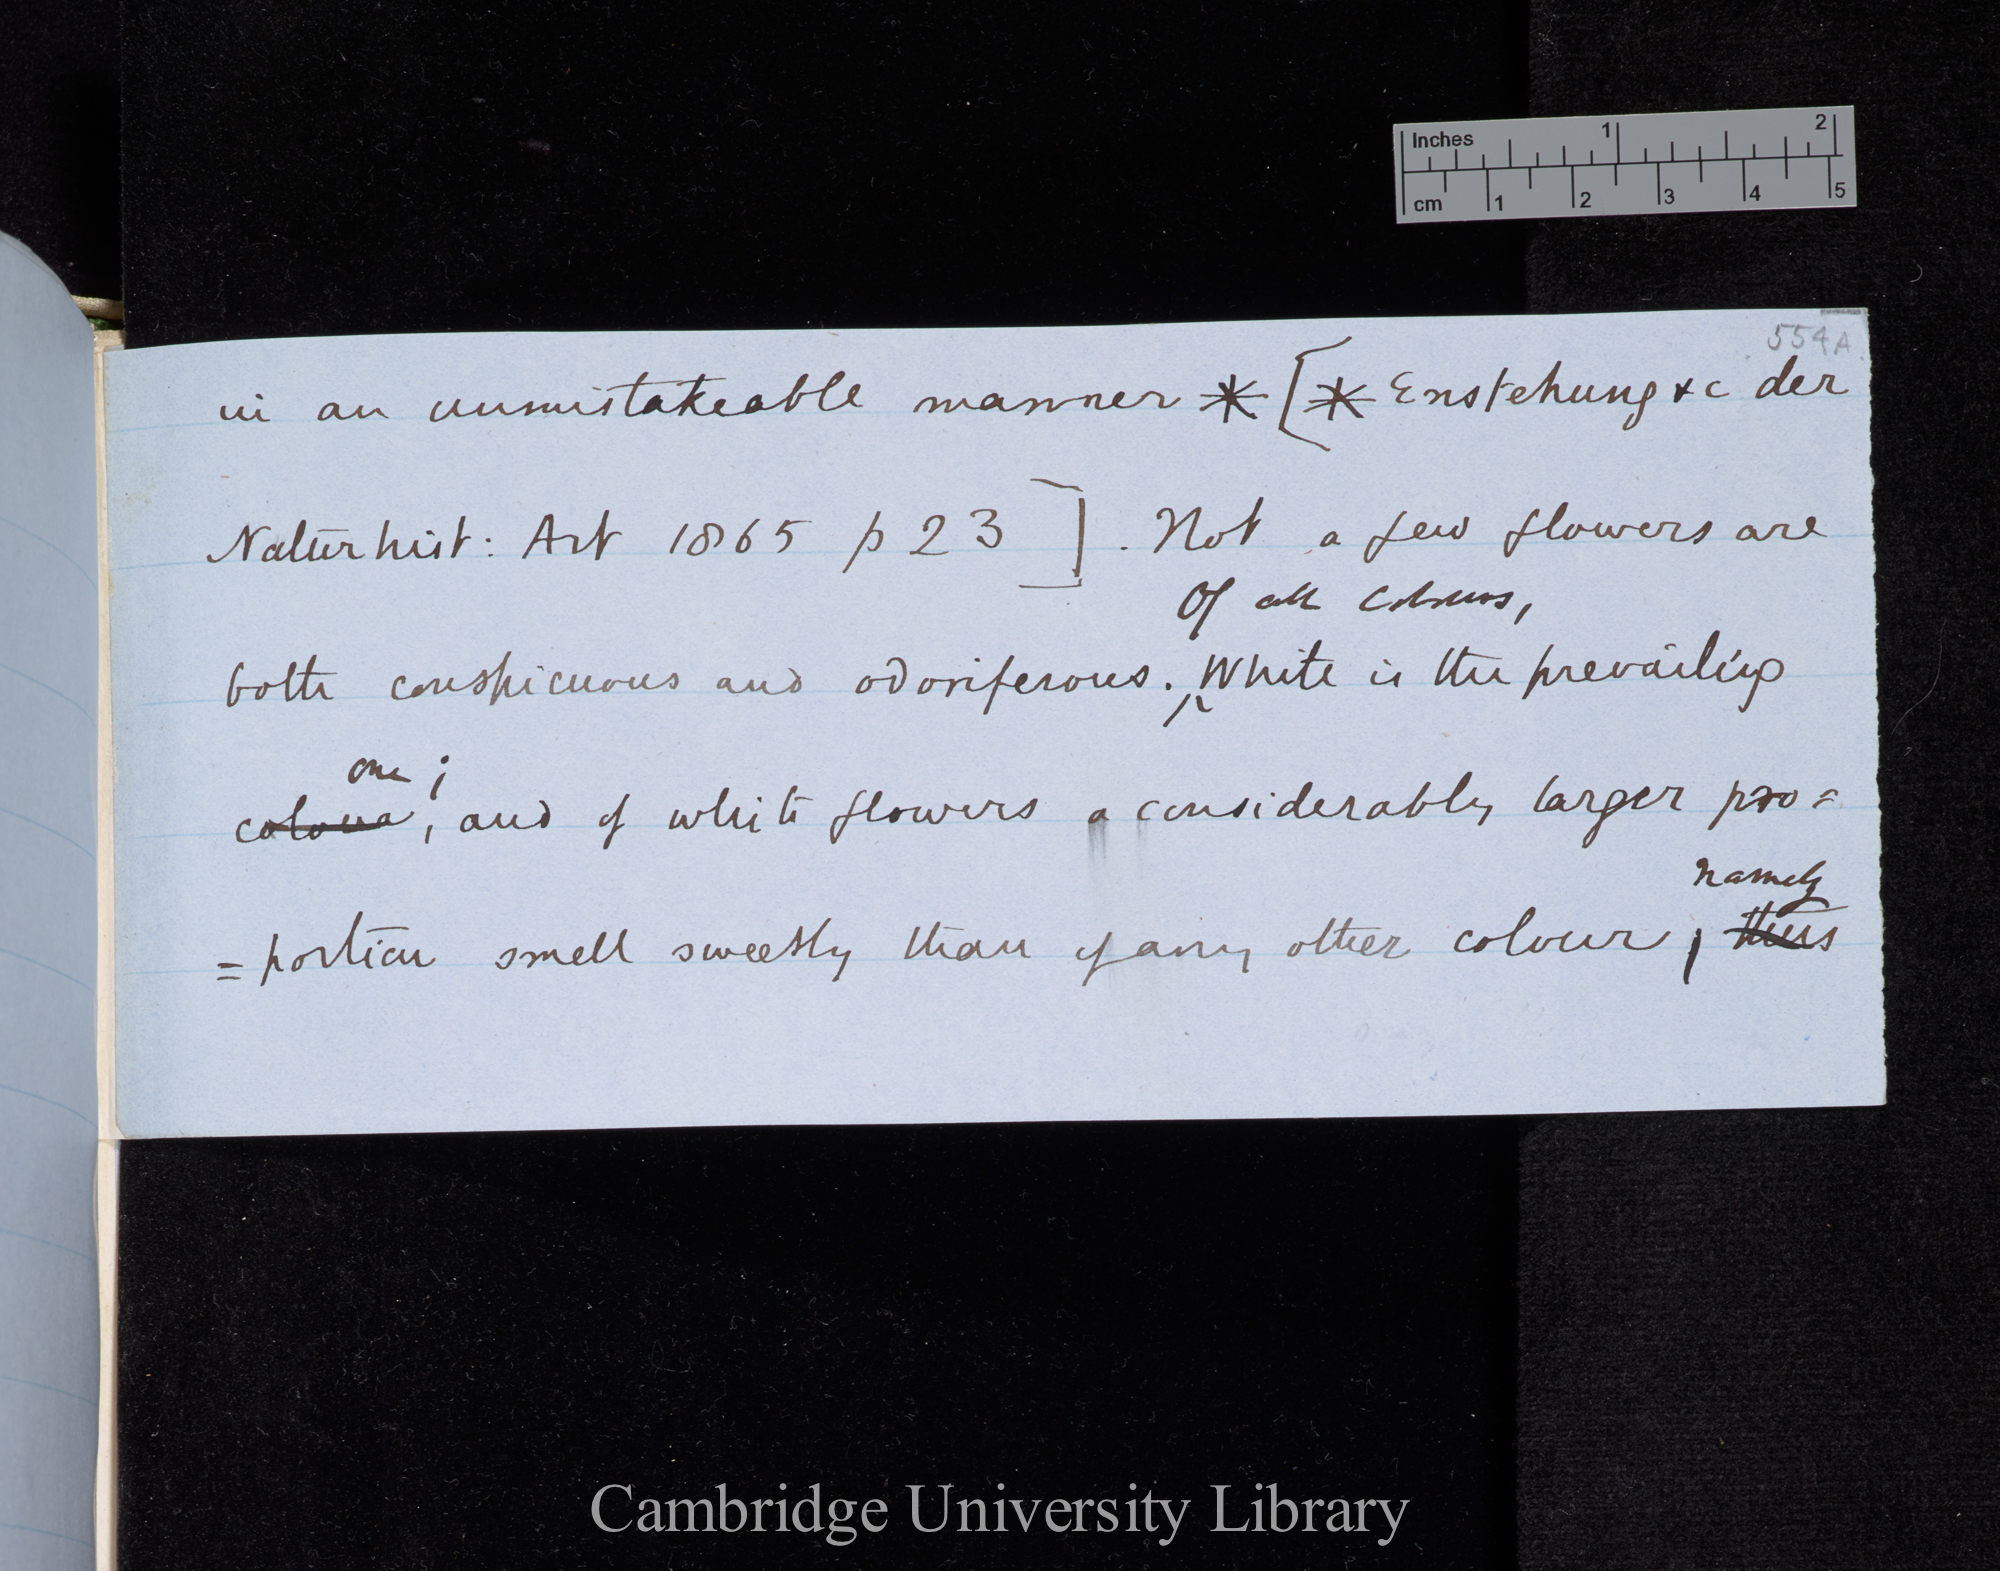 Inches 1 2
cm 1 2 3 4 5
554A
in an unmistakeable manner * [* Enstehung &c der
Naturhist: Art 1865 p 23]. Not a few flowers are
Of all colours,
both conspicuous and odoriferous. ^ White is the prevailing
one ;
colour, and of white flowers a considerably larger pro=
namely
=portion smell sweetly than of any other colour, thus
Cambridge University Library